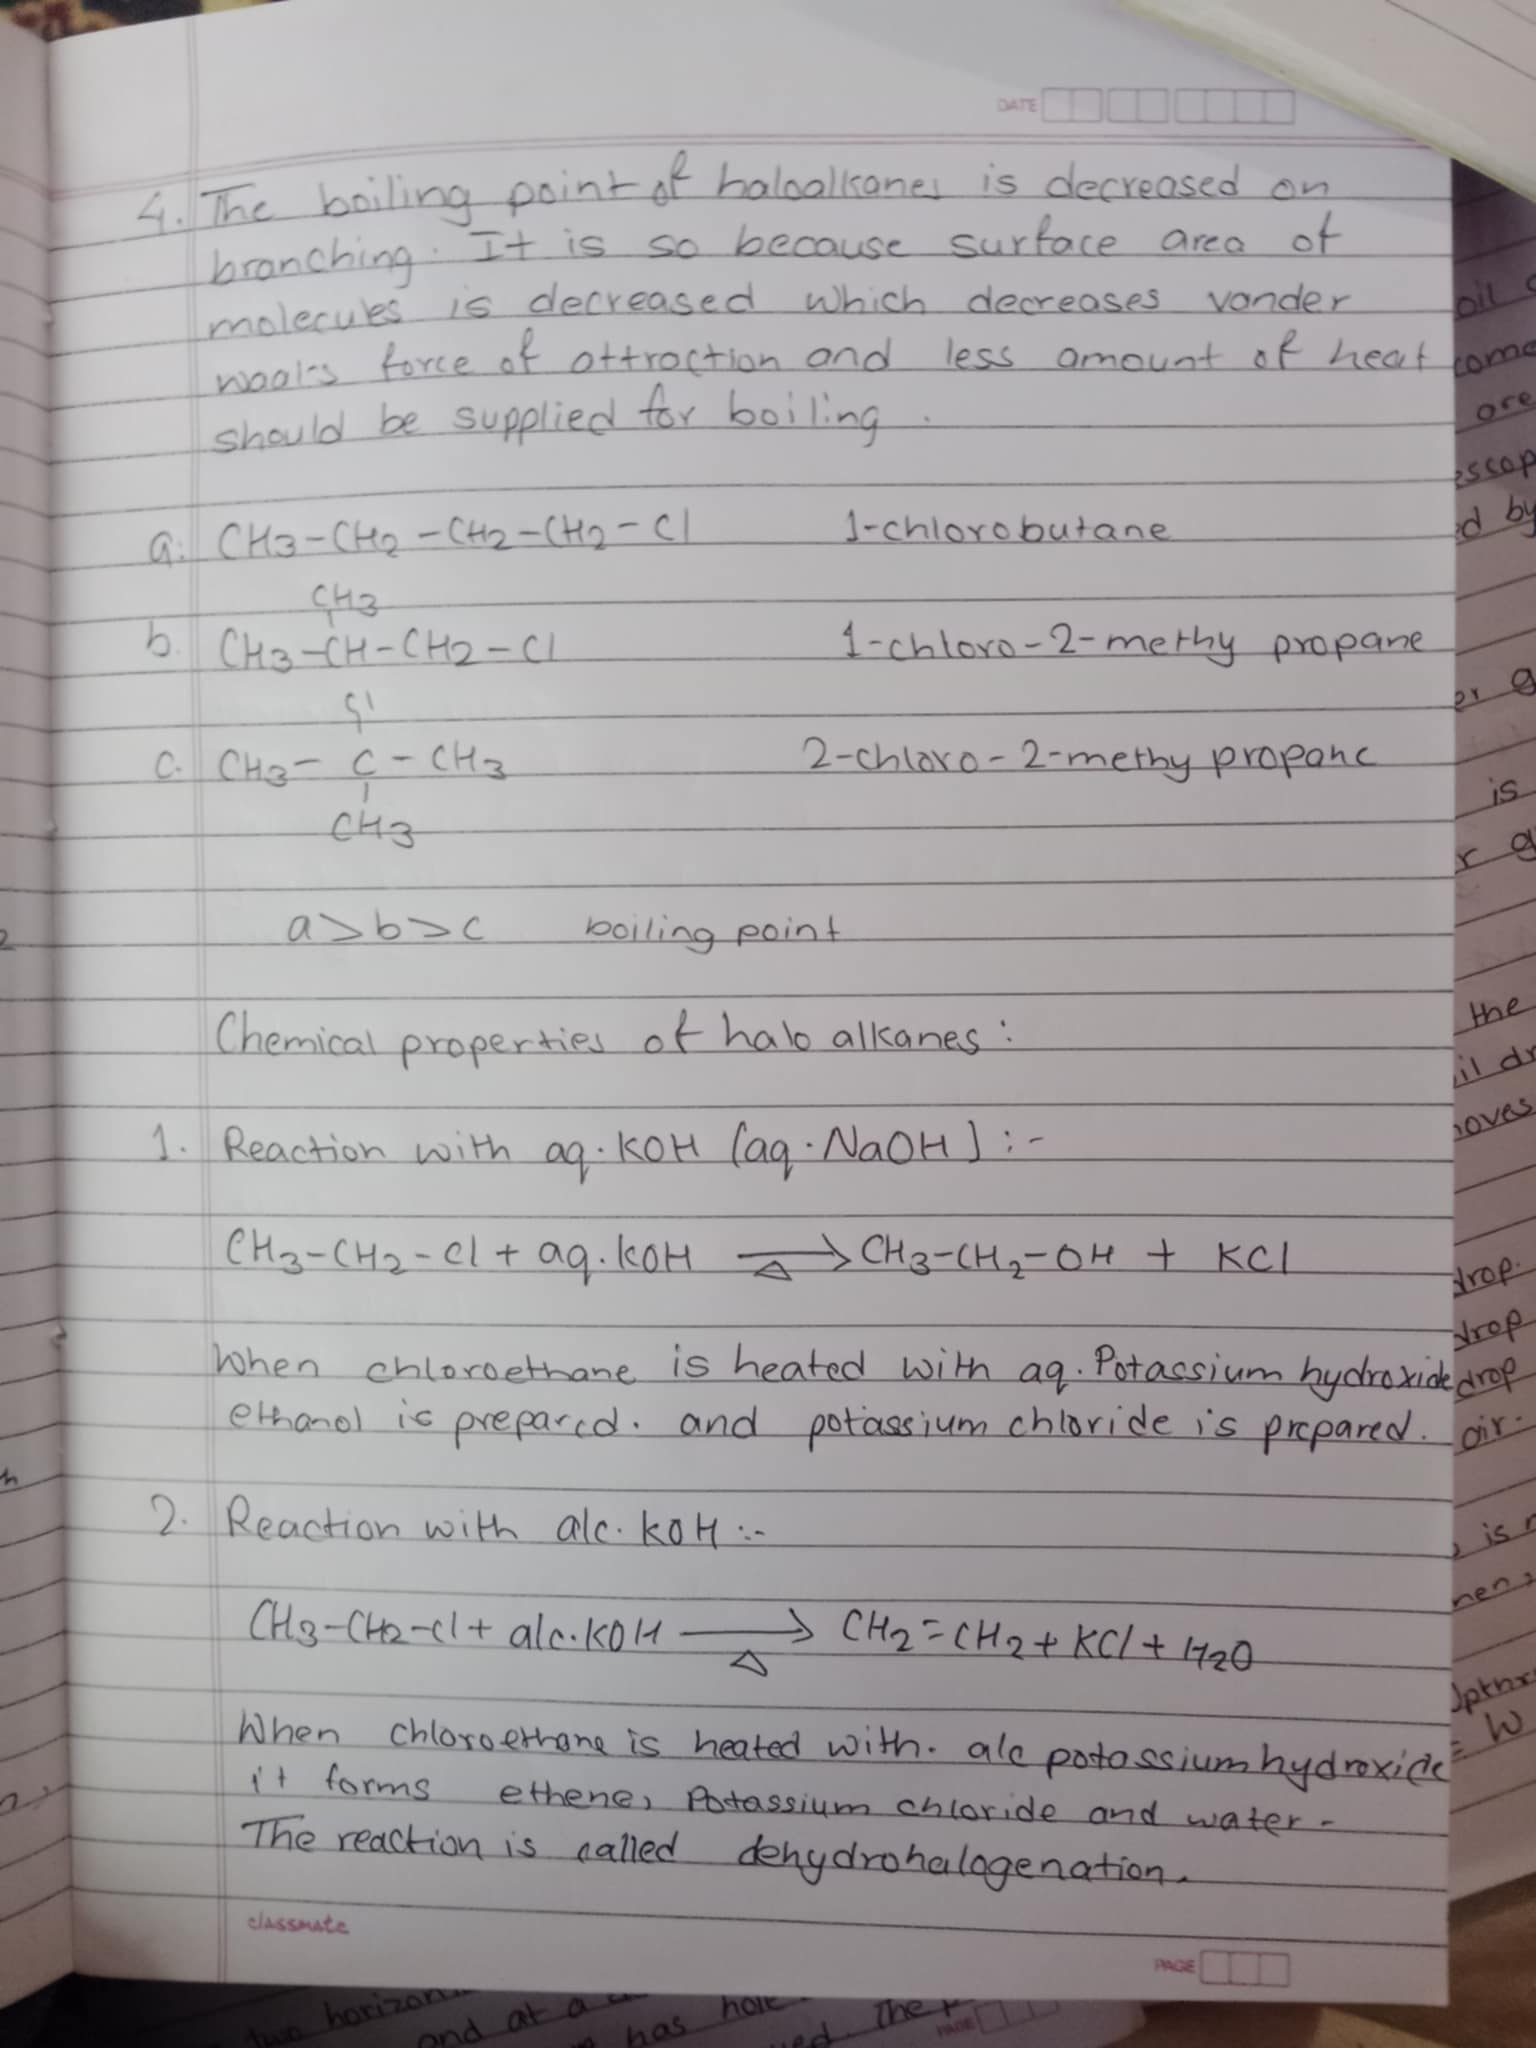 DATE
4. The boiling point of haloalkanes is decreased on
branching. It is so because surface area of
molecules is decreased which decreases vander
waals force of attraction and less amount of heat
should be supplied for boiling.
a. CH3-CH2-CH2-CH2-Cl 1-chlorobutane
CH3
b. CH3-CH-CH2-Cl 1-chloro-2-methy propane
Cl
c. CH3-C-CH3 2-chloro-2-methy propane
CH3
a>b>c boiling point
Chemical properties of halo alkanes:
1. Reaction with aq. KOH (aq. NaOH):-
CH3-CH2-Cl + aq. KOH →Δ CH3-CH2-OH + KCl
When chloroethane is heated with aq. Potassium hydroxide
ethanol is prepared. and potassium chloride is prepared.
2. Reaction with alc. KOH:-
CH3-CH2-Cl + alc. KOH →Δ CH2=CH2 + KCl + H2O
When chloroethane is heated with. alc potassium hydroxide
it forms ethene, Potassium chloride and water-
The reaction is called dehydrohalogenation.
classmate
PAGE
are
by
is
the
drop.
drop
drop
air.
is
W
and at a
has hole
The
PAGE